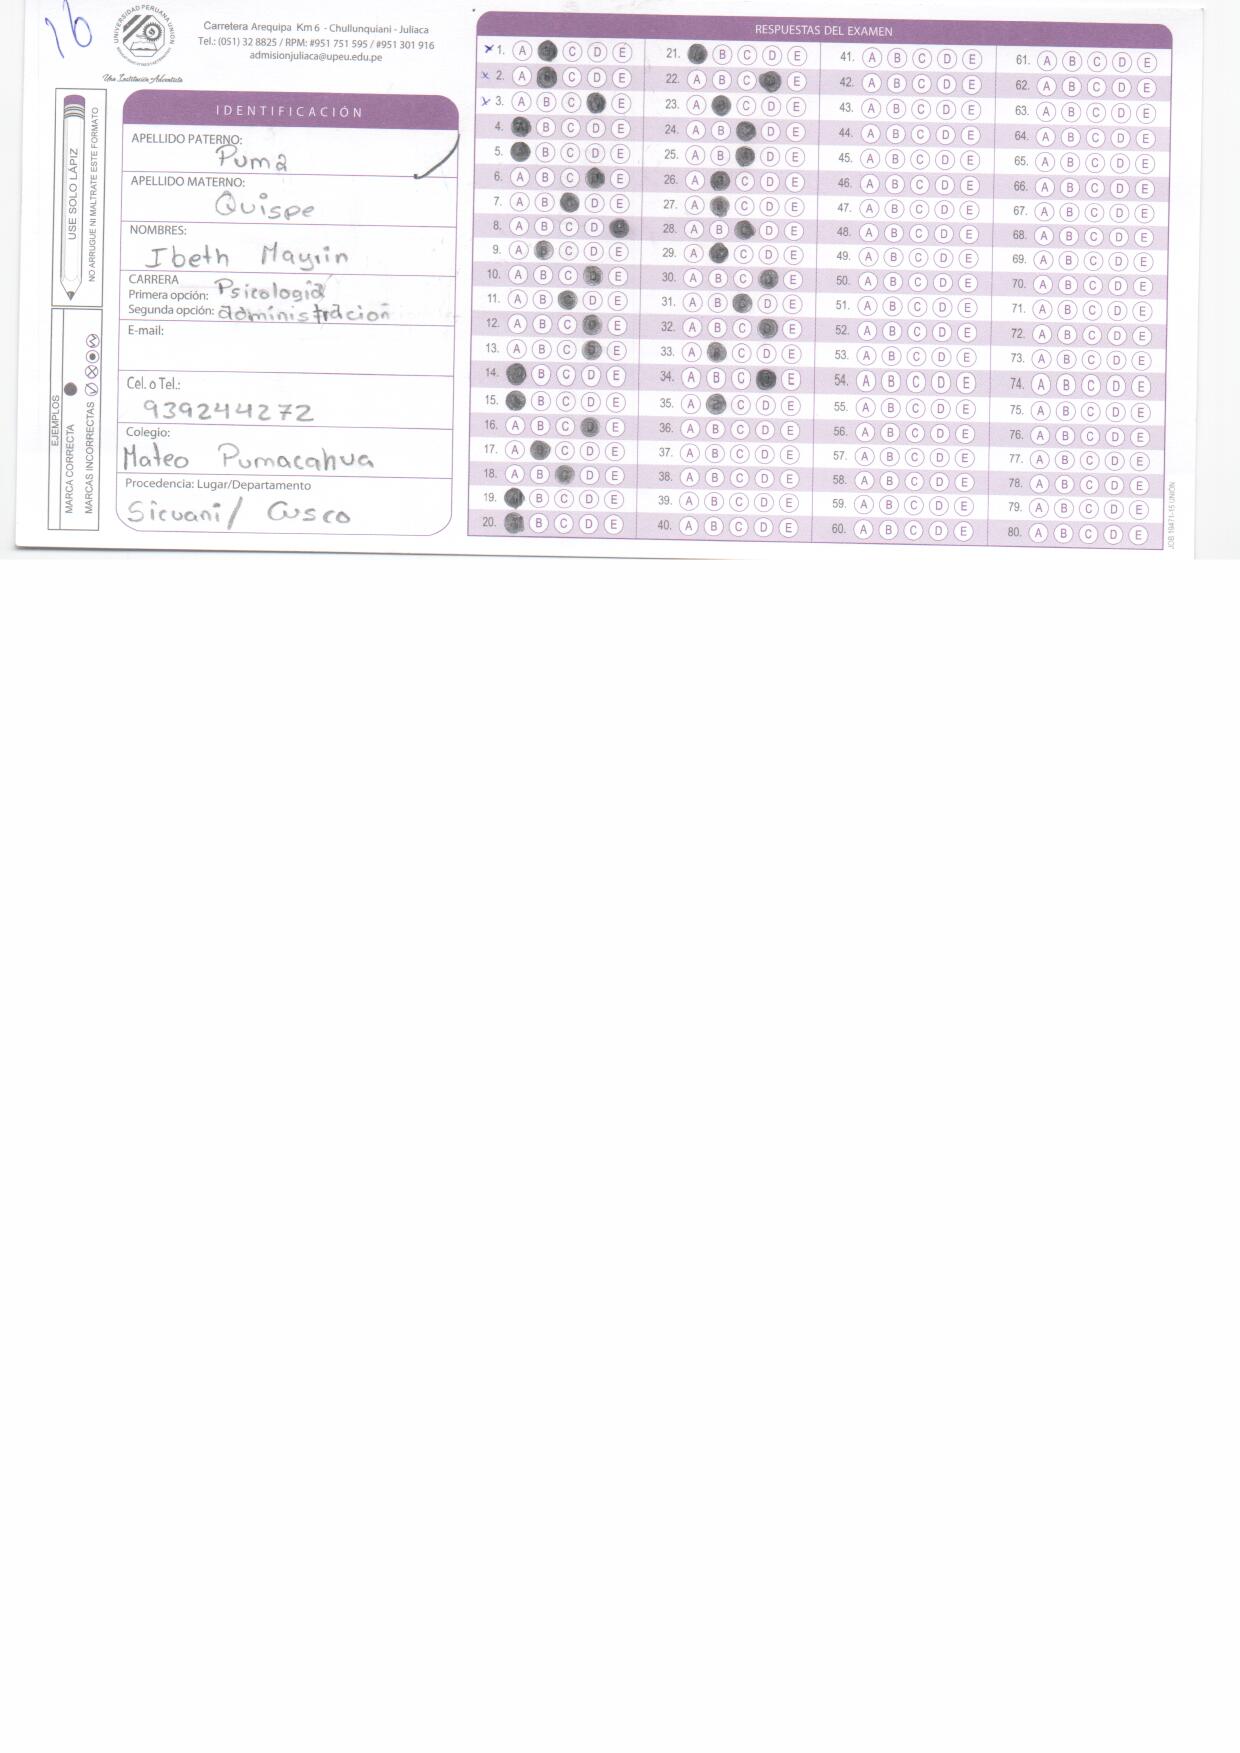 16
UNIVERSIDAD PERUANA UNION
Una Institución Adventista
Carretera Arequipa Km 6 - Chullunquiani - Juliaca
Tel.: (051) 32 8825 / RPM: #951 751 595 / #951 301 916
admisionjuliaca@upeu.edu.pe
USE SOLO LÁPIZ
NO ARRUGUE NI MALTRATE ESTE FORMATO
EJEMPLOS
MARCA CORRECTA
MARCAS INCORRECTAS
IDENTIFICACIÓN
APELLIDO PATERNO:
Puma
APELLIDO MATERNO:
Quispe
NOMBRES:
Ibeth
CARRERA
Primera opción: Psicologia
Segunda opción: administracion
E-mail:
Cel. o Tel.:
939244272
Colegio:
Mateo Pumacahua
Procedencia: Lugar/Departamento
Sicuani/ Cusco
RESPUESTAS DEL EXAMEN
x 1. A C D E
x 2. A C D E
x 3. A B C E
4. B C D E
5. B C D E
6. A B C E
7. A B D E
8. A B C D
9. A C D E
10. A B C E
11. A B D E
12. A B C E
13. A B C E
14. B C D E
15. B C D E
16. A B C E
17. A C D E
18. A B D E
19. B C D E
20. B C D E
21. B C D E
22. A B C E
23. A C D E
24. A B D E
25. A B D E
26. A C D E
27. A C D E
28. A B D E
29. A C D E
30. A B C E
31. A B D E
32. A B C E
33. A C D E
34. A B C E
35. A C D E
36. A B C D E
37. A B C D E
38. A B C D E
39. A B C D E
40. A B C D E
41. A B C D E
42. A B C D E
43. A B C D E
44. A B C D E
45. A B C D E
46. A B C D E
47. A B C D E
48. A B C D E
49. A B C D E
50. A B C D E
51. A B C D E
52. A B C D E
53. A B C D E
54. A B C D E
55. A B C D E
56. A B C D E
57. A B C D E
58. A B C D E
59. A B C D E
60. A B C D E
61. A B C D E
62. A B C D E
63. A B C D E
64. A B C D E
65. A B C D E
66. A B C D E
67. A B C D E
68. A B C D E
69. A B C D E
70. A B C D E
71. A B C D E
72. A B C D E
73. A B C D E
74. A B C D E
75. A B C D E
76. A B C D E
77. A B C D E
78. A B C D E
79. A B C D E
80. A B C D E
JOB 19471-15 UNIÓN